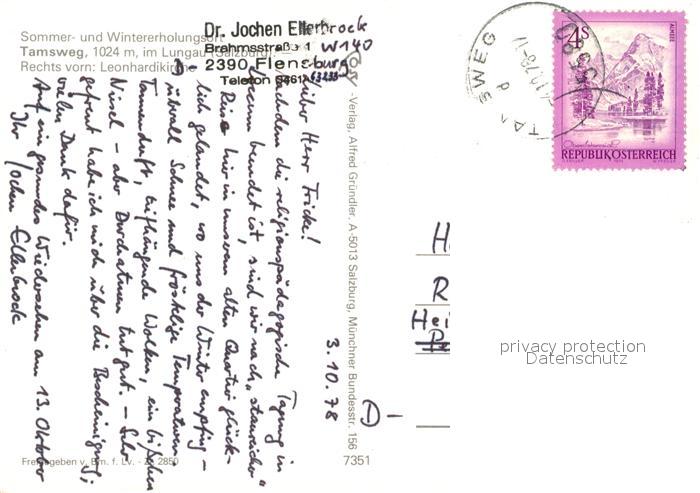 Sommer- und Wintererholungsort
Tamsweg, 1024 m, im Lungau (Salzburg).
Rechts vorn: Leonhardikirche
Dr. Jochen Ellerbrock
Brahmsstraße 1 W140
2390 Flensburg
Telefon 0461/ 63233
3.10.78
Lieber Herr Fricke!
Nachdem die religionspädagogische Tagung in
beendet ist, sind wir nach "
Reise hier in unserem alten Quartier glück-
lich gelandet, wo uns der Winter empfing –
überall Schnee und fröstlige Temperaturen
Tannenduft, tiefhängende Wolken, ein bißchen
Niesel – aber Durchatmen tut gut. – Sehr
gefreut habe ich mich über die Bescheinigung;
vielen Dank dafür.
Auf ein gesundes Wiedersehen am 13. Oktober
Ihr Jochen Ellerbrock
Freigegeben v. Bm. f. Lv. - Zl. 2850
7351
-Verlag, Alfred Gründler, A-5013 Salzburg, Münchner Bundesstr. 156
TAMSWEG
5580
4S
ALMSEE
REPUBLIK ÖSTERREICH
H
R
Hei
D –
privacy protection
Datenschutz